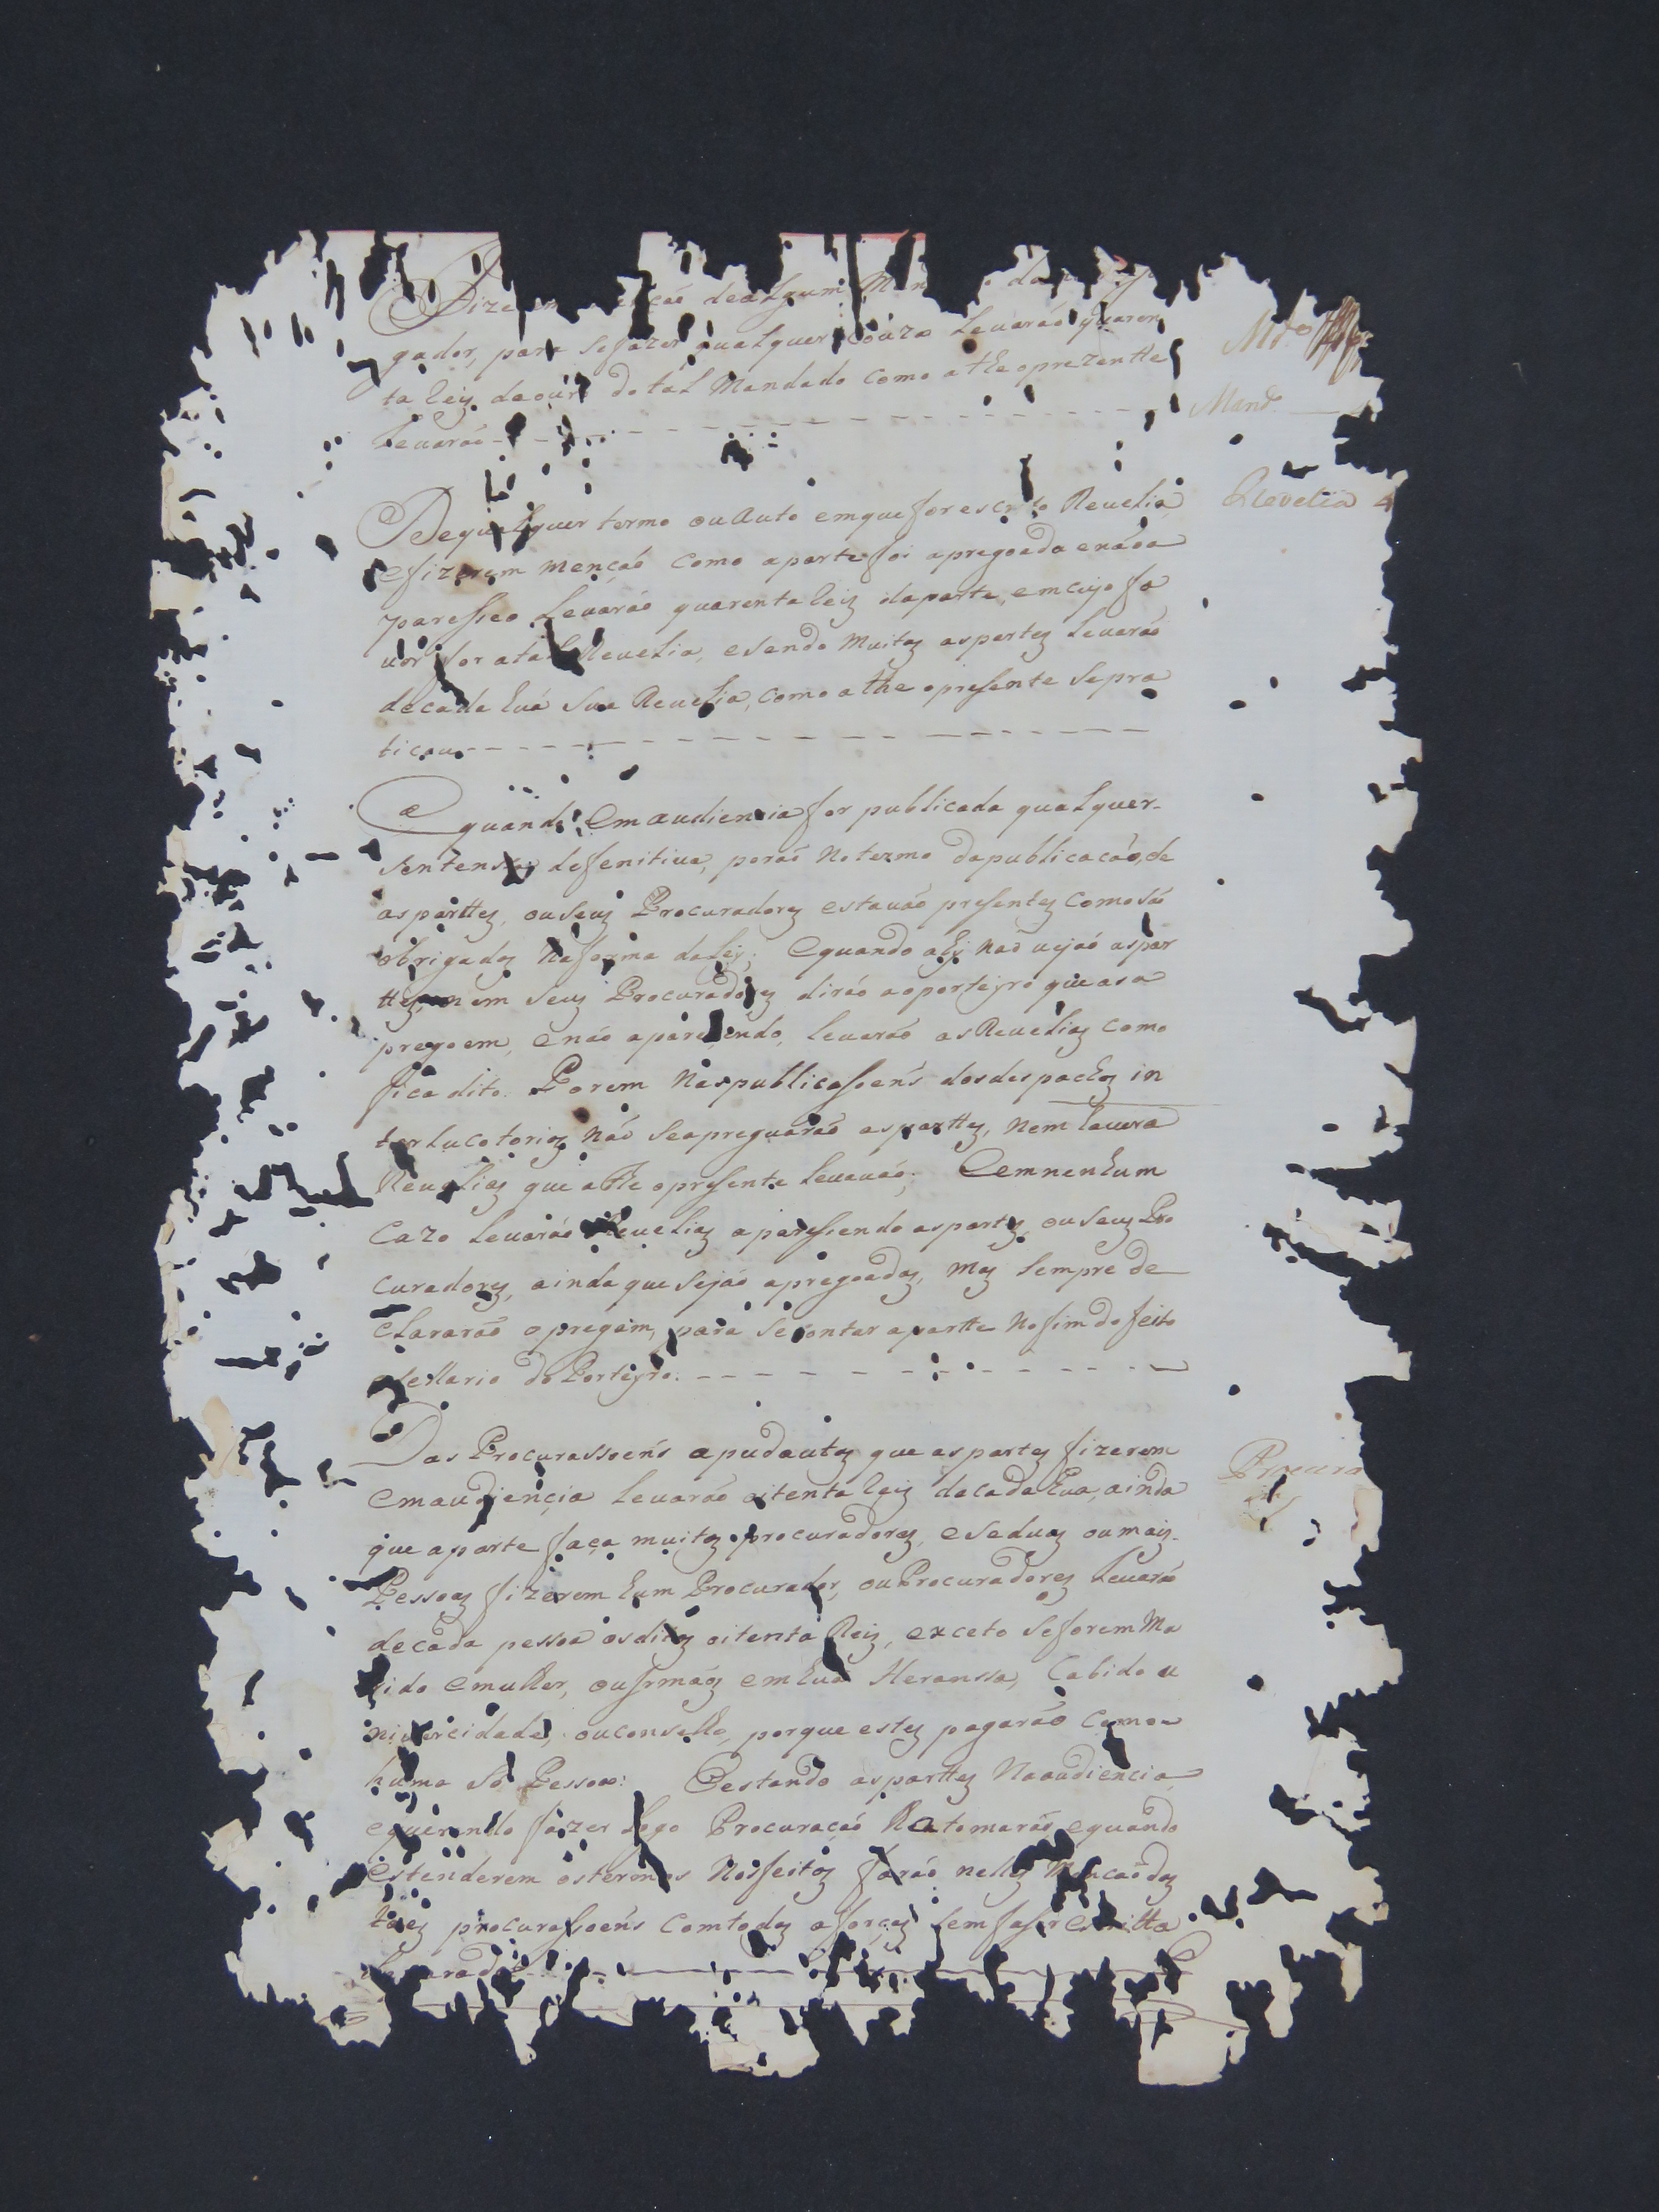 dealgum
gador, para sefazer qualquer couza Levaráo quaren
ta reis daourª do tal Mandado como athe oprezentte
Levaráo
Mand.
De qualquer termo ou Auto emque for escrito Revelia
Revelia 4
efizerem mençaó como aparte foi apregoada enáoa
paresseo Levaráo quarenta reis daparte, emcujo fa
vor for atal Revelia, esendo muitas aspartes Levaráo
decada huá sua Revelia, como athe opresente sepra
ticou
E quando Em audiencia for publicada qualquer
sentensa defenitiva, poraó no termo dapublicacaó, de
asparttes, ouseus Procuradores estavaó presentes comosáo
obrigados Na forma daLey; Equando ahy naó vejaó aspar
ttes, nem seus Procuradores diráo aoporteyro que asa
pregoem, enáo aparesendo, levaráo asRevelias como
fica dito. Porem Naspublicassoens dosdespachos in
terlucotorios Náo seapreguaráo asparttes, nem Lavera
Revelias que athe opresente levaváo; Eemnenhum
Cazo Levaráo Revelias aparessendo aspartes, ouseus Pro
curadores, ainda que sejáo apregoados, mas sempre de
clararáo opregam, para secontar apartte Nofim do feito
osellario do Porteyro.
Das Procurassoens apudautos que aspartes fizerem
Procura
Emaudiençia Levaráo oitenta reis decada hua, ainda
que aparte faça muitos procuradores, eseduas ou mais
Pessoas fizerem hum Procurador, ouProcuradores Levaráo
decada pessoa osditos oitenta Reis, exceto seforem Ma
rido Emulher, ouIrmáos em huá Heranssa, Cabido u
nivercidade, ouconselho, porque estes pagaráo Como
huma só Pessoa: Eestando asparttes Naaudiencia
equerendo fazer Logo Procuraçaó Latomaráo equando
Estenderem ostermos Nosfeitos faráo nelles Mencaódas
taes procurassoens comtodas asforças sem escritta